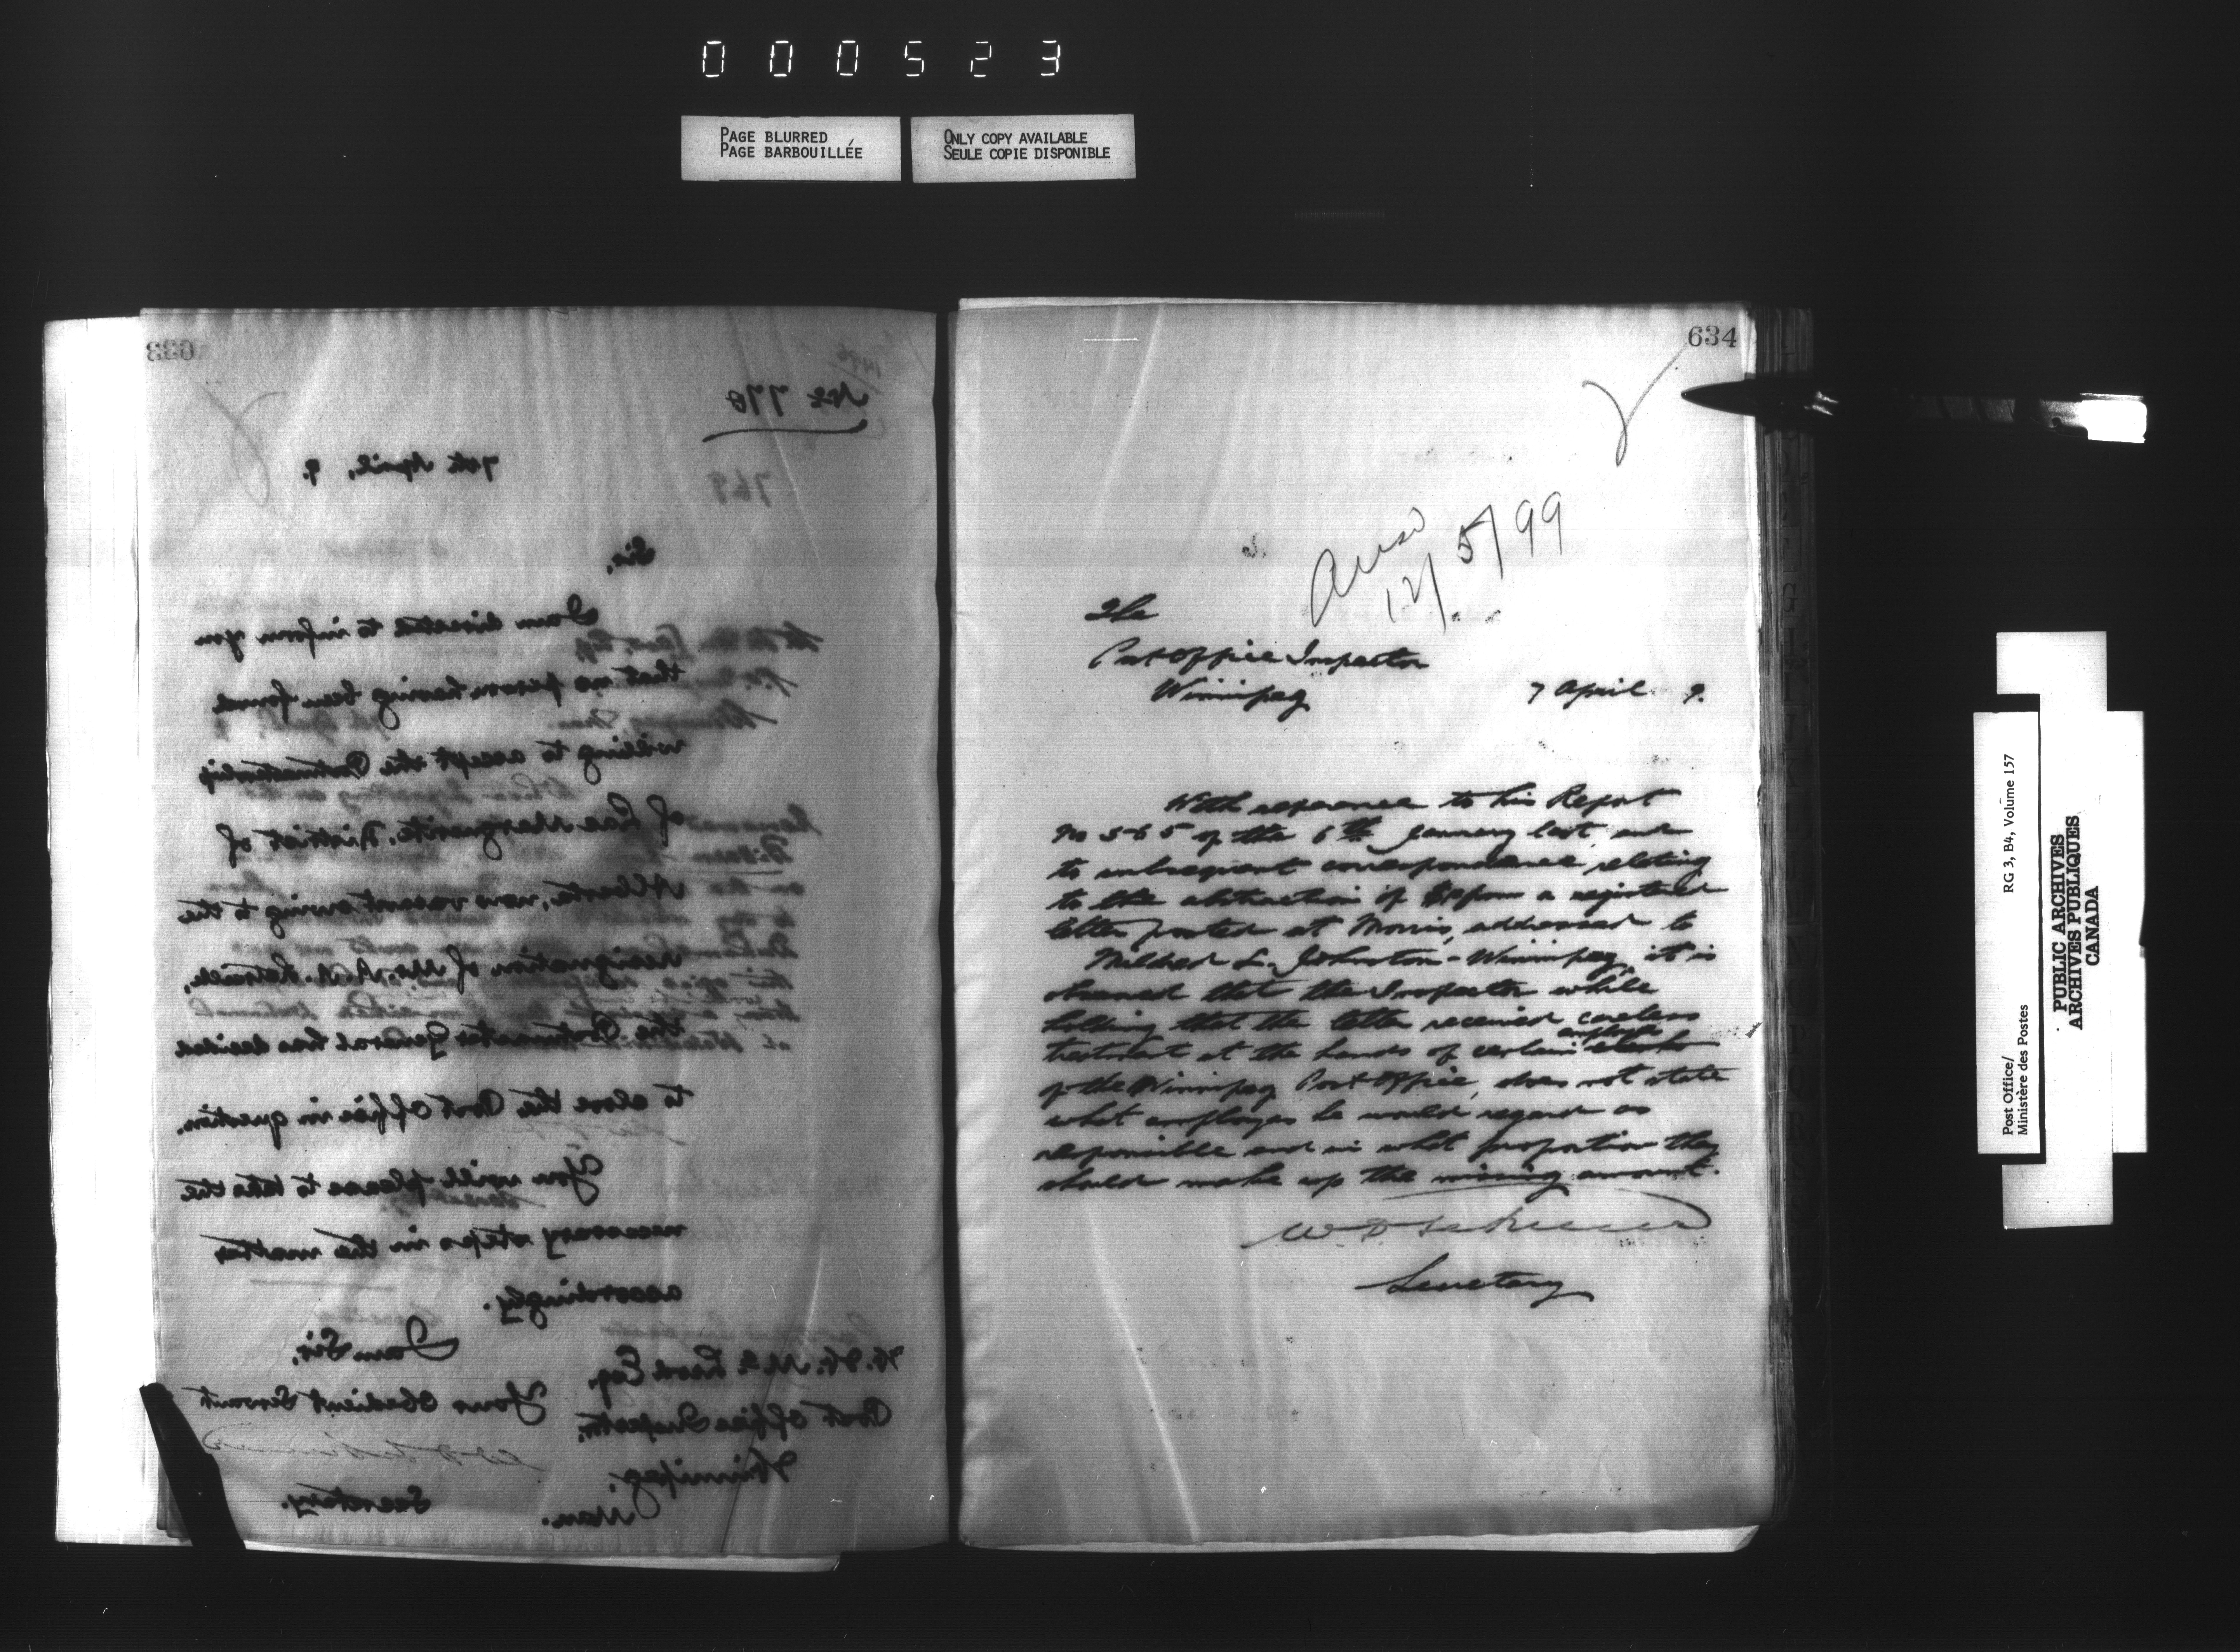 000523
PAGE BLURRED
PAGE BARBOUILLÉE
ONLY COPY AVAILABLE
SEULE COPIE DISPONIBLE
633
No 770
769
7th April, 9.
Sir,
I am directed to inform you
that no person having been found
willing to accept the Postmastership
of Lac Marguerite, District of
Alberta, now vacant owing to the
resignation of Mr.
the Postmaster General has decided
to close the Post Office in question.
You will please to take the
necessary steps in the matter
accordingly.
I am Sir,
Your obedient Servant
Secretary.
W. W. McLeod Esq.
Post Office Inspector,
Winnipeg,
Man.
634
Answ
12/5/99
The
Post Office Inspector
Winnipeg
7 April 9.
With reference to his Report
No 565 of the 6th January last and
to subsequent correspondence relating
to the abstraction of from a registered
letter posted at Morris, addressed to
Mildred L. Johnston - Winnipeg, it is
observed that the Inspector while
holding that the letter received careless
treatment at the hands of certain employés
of the Winnipeg Post Office, does not state
what employés he would regard as
responsible and in what proportion they
should make up the missing amount.
Secretary
Post Office/
Ministère des Postes
RG 3, B4, Volume 157
PUBLIC ARCHIVES
ARCHIVES PUBLIQUES
CANADA